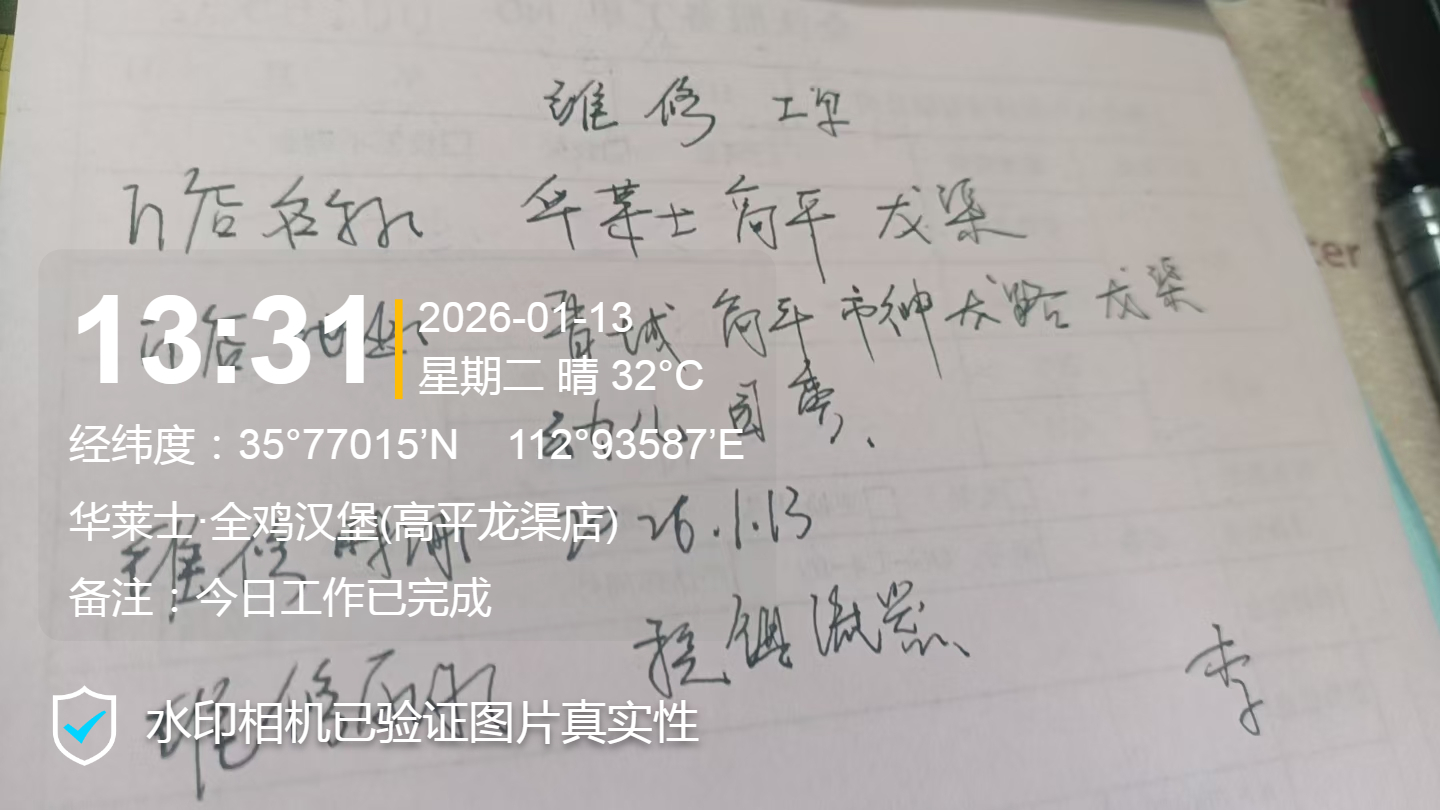 维修工单
门店名称 华莱士高平龙渠
门店地址 晋城高平市神龙路龙渠
幼儿园旁、
13:31
2026-01-13
星期二 晴 32°C
经纬度：35°77015’N 112°93587’E
华莱士·全鸡汉堡(高平龙渠店)
备注：今日工作已完成
维修时间 2026.1.13
维修
李
水印相机已验证图片真实性